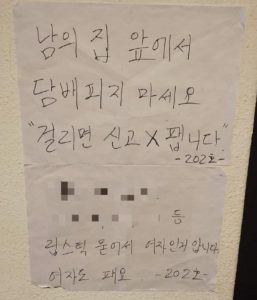 남의 집 앞에서
담배피지 마세오
"걸리면 신고 X 팹니다"
-202호-
등
립스틱 묻어서 여자인거 압니다
여자도 패요 -202호-